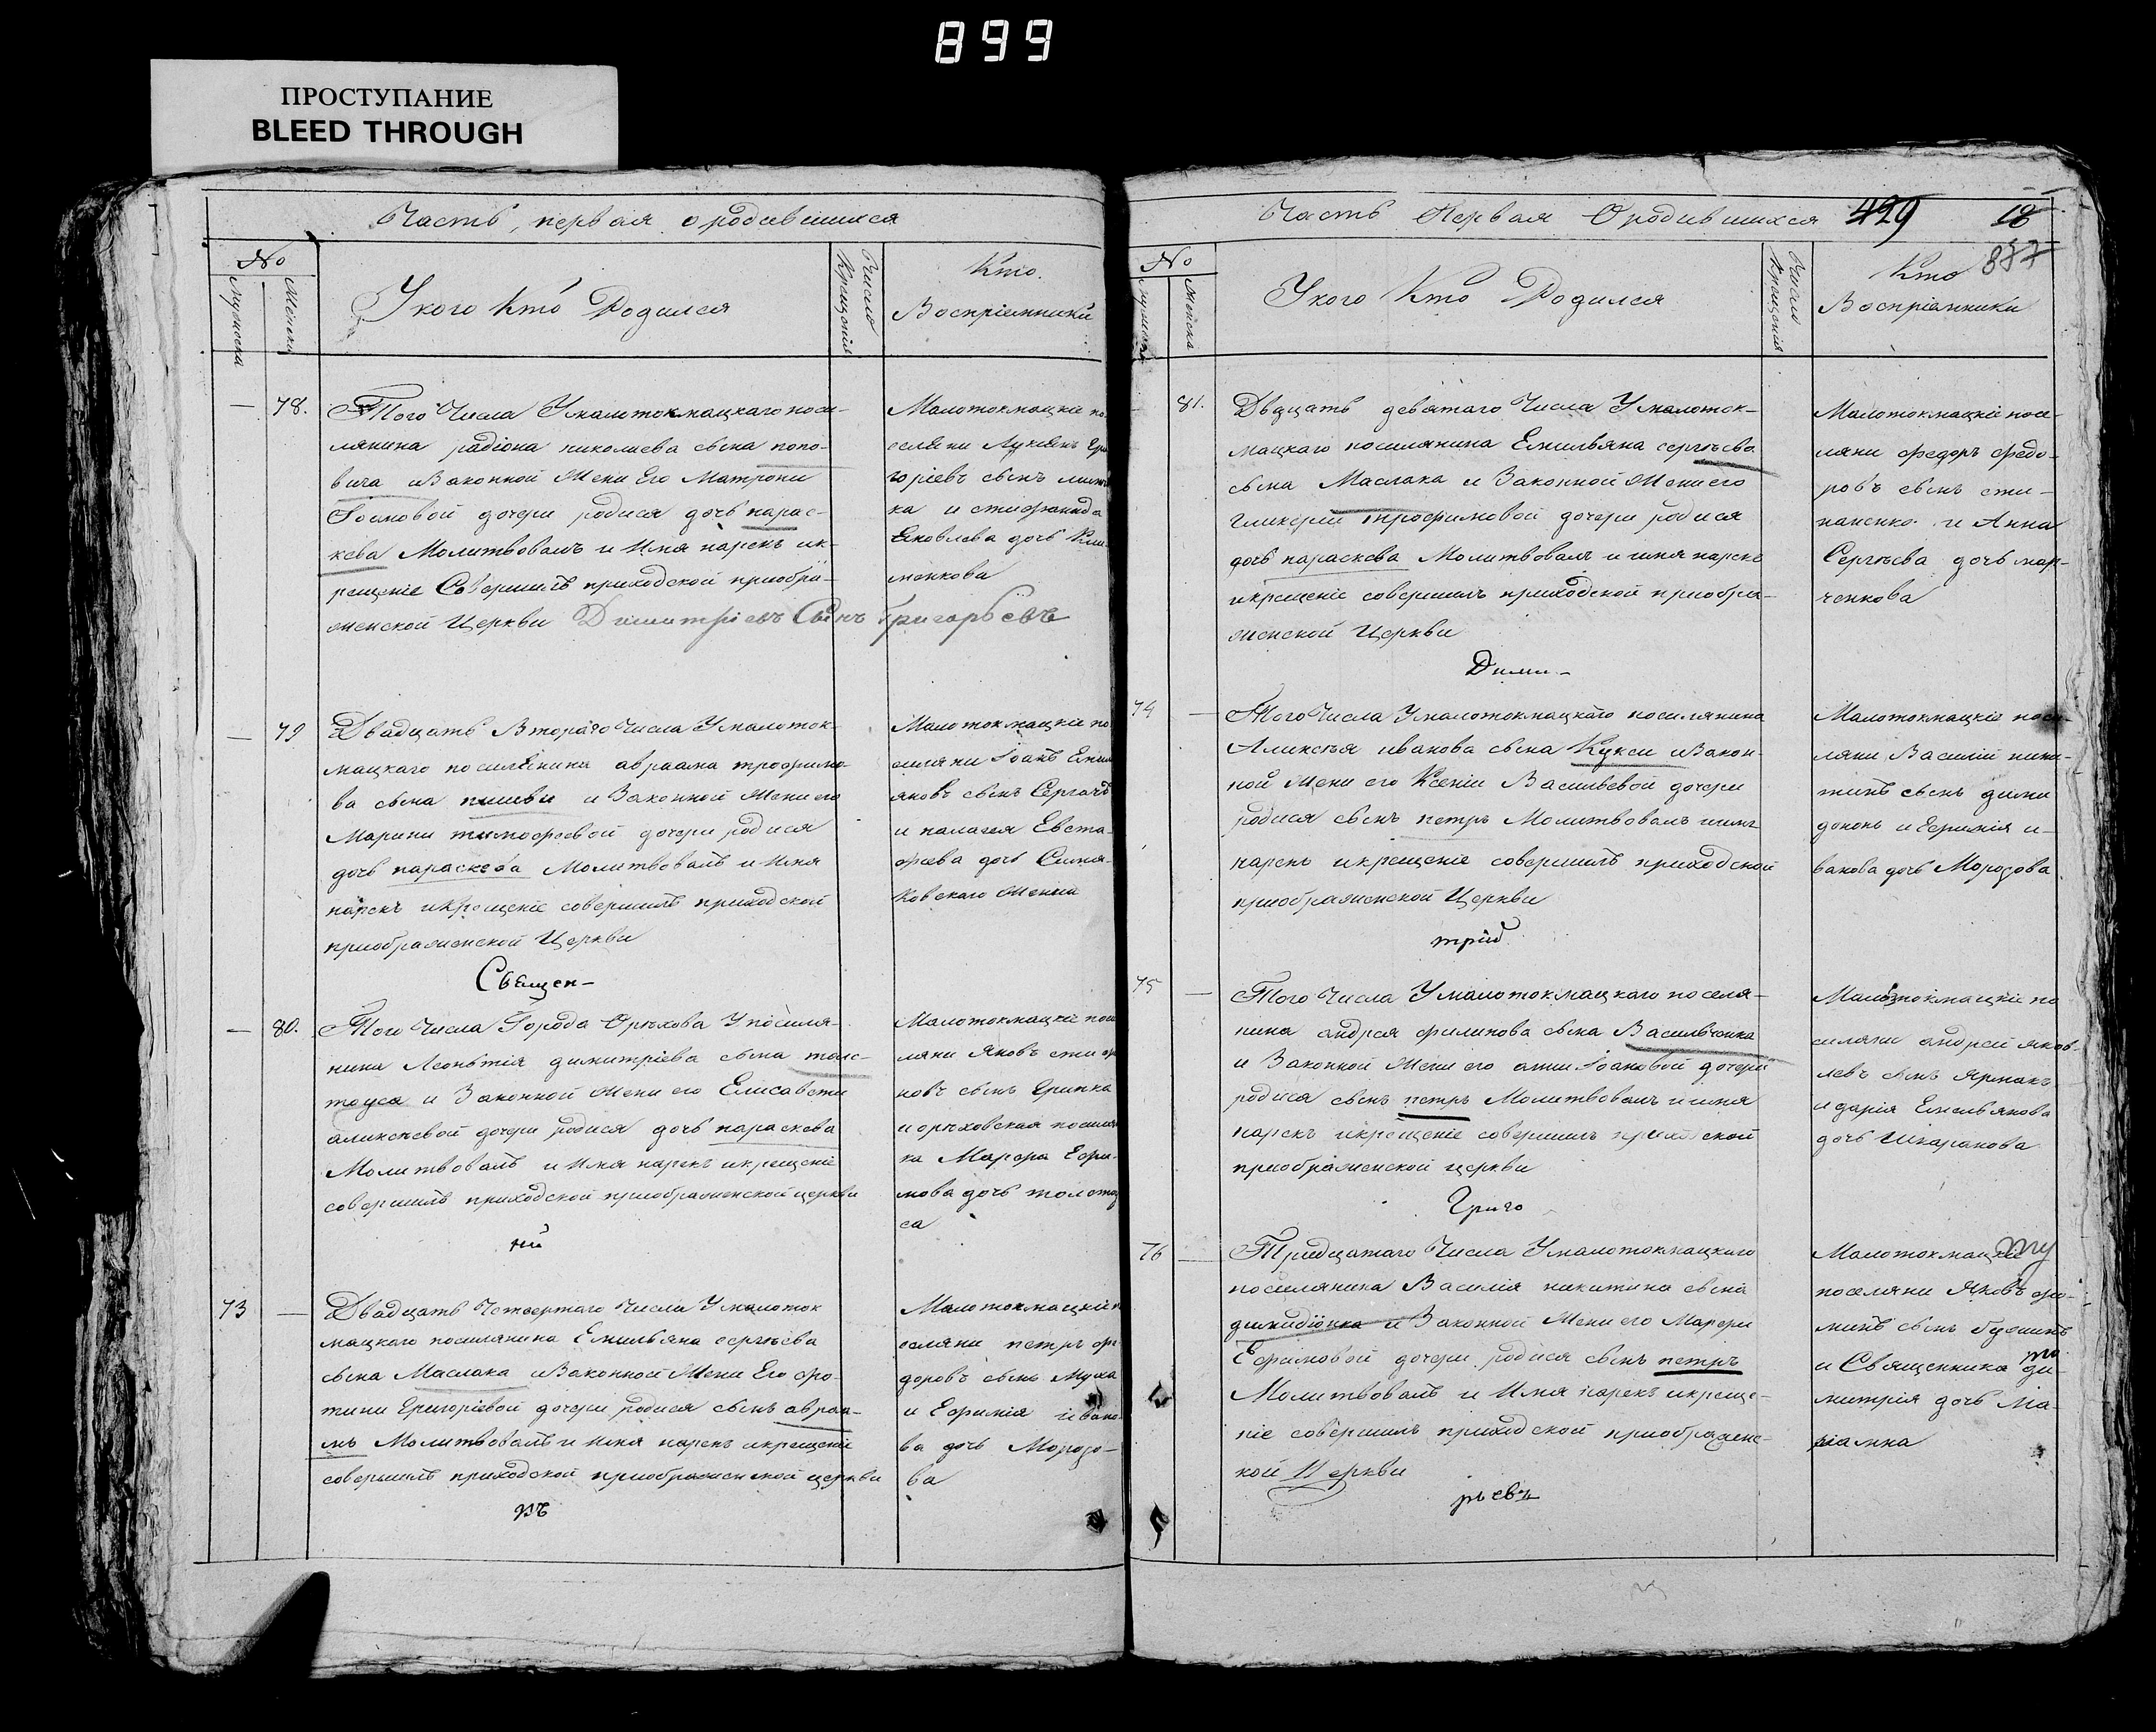 899
ПРОСТУПАНИЕ
BLEED THROUGH
Часть, первая о родившихся
№
Мужеска
Женска
У кого Кто Родился
Число Крещенія
Кто.
Воспріемники
78.
Того Числа У малотокмацкаго посе-
лянина радіона николаева сына попо-
вича и Законной Жени Его Матрони
Іоановой дочери родися дочь парас-
кева Молитвовалъ и Имя нарекъ ик-
рещеніе Совершилъ приходской приобра-
женской Церкви Димитріевъ Сынъ Григорьевъ
Малотокмацкіе по
селяни Лукіянъ Гри
горіевъ сынъ
ка и стефанида
Яковлева дочь Кли-
менкова
79
Двадцать Втораго Числа У малоток-
мацкаго поселянина авраама трофимо-
ва сына и Законной Жени его
Марини тимофеевой дочери родися
дочь параскева Молитвовалъ и Имя
нарекъ икрещеніе совершилъ приходской
приображенской Церкви
Священ-
Малотокмацкіе по
селяни Іоанъ Емил
яновъ сынъ Сергачъ
и палагея Евста-
фева дочь
ковского Женка
80.
Того Числа Города Орѣхова У поселя-
нина Леонтія димитріева сына толс-
тоуса и Законной Жени его Елисавети
аликсѣевой дочери родися дочь параскева
Молитвовалъ и Имя нарекъ икрещеніе
совершилъ приходской приображенской церкви
ни
Малотокмацкіе посе
ляни Яковъ сти
новъ сынъ Грипка
и орѣховская поселян
ка Марфа Ефи-
мова дочь толстоу
са
73
Двадцать Четвертаго Числа У малоток
мацкаго поселянина Емильяна сергѣева
сына Маслака и Законной Жени Его фо-
тини Григорьевой дочери родися сынъ авраа-
мъ Молитвовалъ и Имя нарекъ икрещеніе
совершилъ приходской приображенской церкви
къ
Малотокмацкіе п
оселяни петръ фе
доровъ сынъ Муха
и Ефимія івано-
ва дочь Морозо-
ва
Часть Первая О родившихся
429
18
877
№
Мужеска
Женска
У кого Кто Родился
Число Крещенія
Кто
Воспріемники
81.
Двдцать девятаго Числа У малоток-
мацкаго поселянина Емильяна сергѣева
сына Маслака и Законной Жени его
Гликеріи трофимовой дочери родися
дочь параскева Молитвовалъ и имя нарекъ
икрещеніе совершилъ приходской приобра-
женской Церкви
Дими-
Малотокмацкіе посе-
ляни федоръ федо-
ровъ сынъ сти-
паненко. и Анна
Сергѣева дочь мар-
ченкова
74
Того Числа У малотокмацкаго поселянина
Аликсѣя иванова сына Кукси и Закон-
ной Жени его Ксеніи Васильевой дочери
родися сынъ петръ Молитвовалъ иимя
нарекъ икрещеніе совершилъ приходской
приображенской Церкви
трій
Малотокмацкіе посе-
ляни Василій ники-
тинъ сынъ дими
донокъ и Ефимія и-
ванова дочь Морозова
75
Того Числа У малотокмацкаго поселя-
нина андрея филипова сына Васильченка
и Законной Жени его анни Іоановой дочери
родися сынъ петръ Молитвовалъ и имя
нарекъ икрещеніе совершилъ приходской
приображенской церкви
Григо
Малотокмацкіе по
селяни андрей яков-
левъ сынъ Ярмакъ
и дарія Емельянова
дочь Шкаранова
76
Тридцатаго Числа У малотокмацкаго
поселянина Василія никитина сына
димидіонка и Законной Жени его Марфи
Ефимовой дочери родися сынъ петръ
Молитвовалъ и Имя нарекъ икреще-
ніе совершилъ приходской приображенс-
кой Церкви
рьевъ
Малотокмацкіе
поселяни Яковъ фо-
минъ сынъ
и Священника ди-
митрія дочь Ма-
ріамна